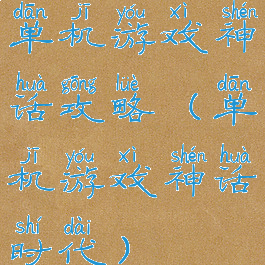 dān jī yóu xì shén
单机游戏神
huà gōng lüè dān
话攻略（单
jī yóu xì shén huà
机游戏神话
shí dài
时代）